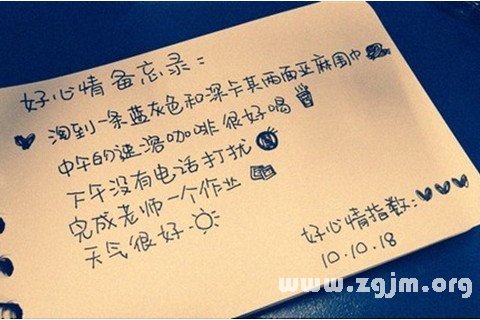 好心情备忘录：
淘到一条蓝灰色和深卡其两面亚麻围巾
中午的速溶咖啡很好喝
下午没有电话打扰
完成老师一个作业
天气很好
好心情指数：
10.10.18
www.zgjm.org